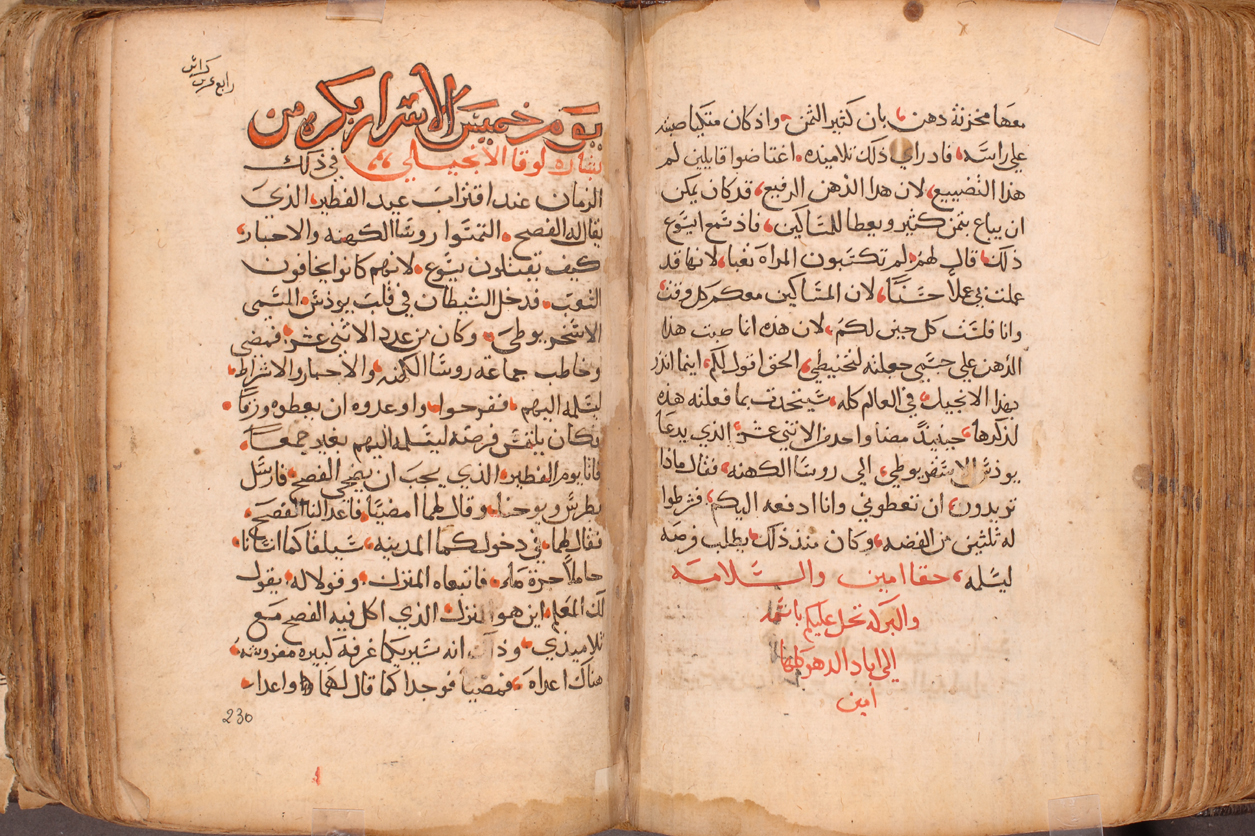 معها مخزنة دهن بان كثير الثمن واذ كان متكيا صبته
على راسه فاذ راي ذلك تلاميذه اغتاضوا قايلين لم
هذا التضييع لان هذا الدهن الرفيع قد كان يمكن
ان يباع بثمن كثير ويعطا للمساكين فاذ سمع ايسوع
ذلك قال لهم لم تكسبون المراه تعبا لانها قد
عملت بي عملاً حسناً لان المساكين معكم كل وقت
وانا فلست كل حين لكم لان هذه انا صبت هذا
الدهن علي جسمي جعلته لتحنيطي الحق اقول لكم اينما انذر
بهذا الانجيل في العالم كله سيتحدث بما فعلته هذه
لذكرها حينيذ مضا واحد من الاثني عشر الذي يدعا
يوذس الاسخريوطي الي روسا الكهنه فقال ماذا
تريدون ان تعطوني وانا ادفعه اليكم فشرطوا
له ثلثين من الفضه وكان منذ ذلك يطلب فرصه
ليسلمه حقا امين والسلامه
والبركه تحل عليكم باسمه
الي اباد الدهر كلها
امين
كراس
رابع عشرين
يوم خميس الاسرار بكره من
بشاره لوقا الانجيلي في ذلك
الزمان عند اقتراب عيد الفطير الذي
يقال له الفصح التمسوا روسا الكهنه والاحبار
كيف يقتلون يسوع لانهم كانوا يخافون
الشعب فدخل الشيطان في قلب يوذس المسمى
الاسخريوطي وكان من عدد الاثني عشر فمضي
وخاطب جماعة روسا الكهنه والاحبار والاشراط
ليسلمه اليهم ففرحوا واوعدوه ان يعطوه ورقاً
فكان يلتمس فرصه ليسلمه اليهم بغير جمعاً
فاتا يوم الفطير الذي يجب ان يضحي الفصح فارسل
بطرس ويوحنا وقال لهما امضيا فاعدا لنا الفصح
فقال لهما في دخولكما المدينه سيلقاكما انسانا
حاملاً جرة ماء فاتبعاه المنزل وقولا له يقول
لك المعلم اين هو المنزل الذي اكل فيه الفصح مع
تلاميذي وذلك انه سيريكما غرفة كبيره مفروشه
هناك اعداه فمضيا فوجدا كما قال لهما واعدا
230